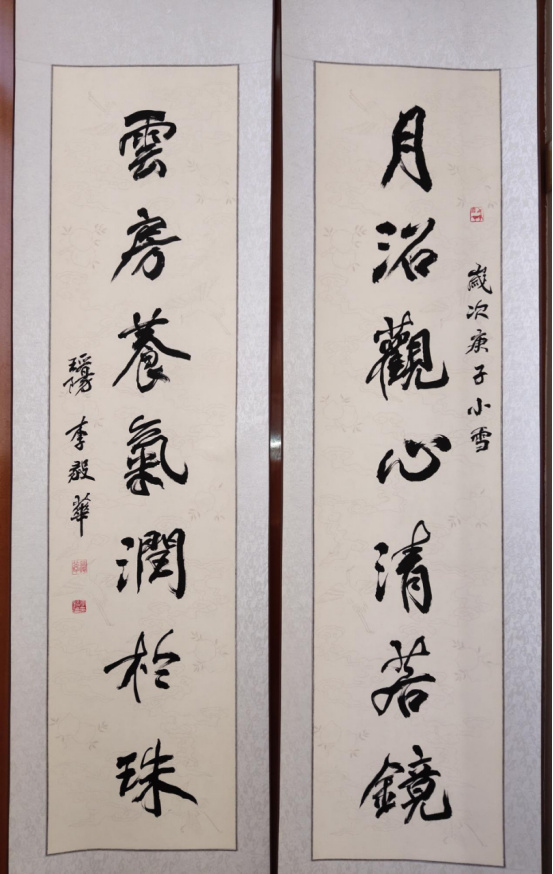 歲次庚子小雪
月沼觀心清若鏡
雲房養氣潤於珠
李毅華